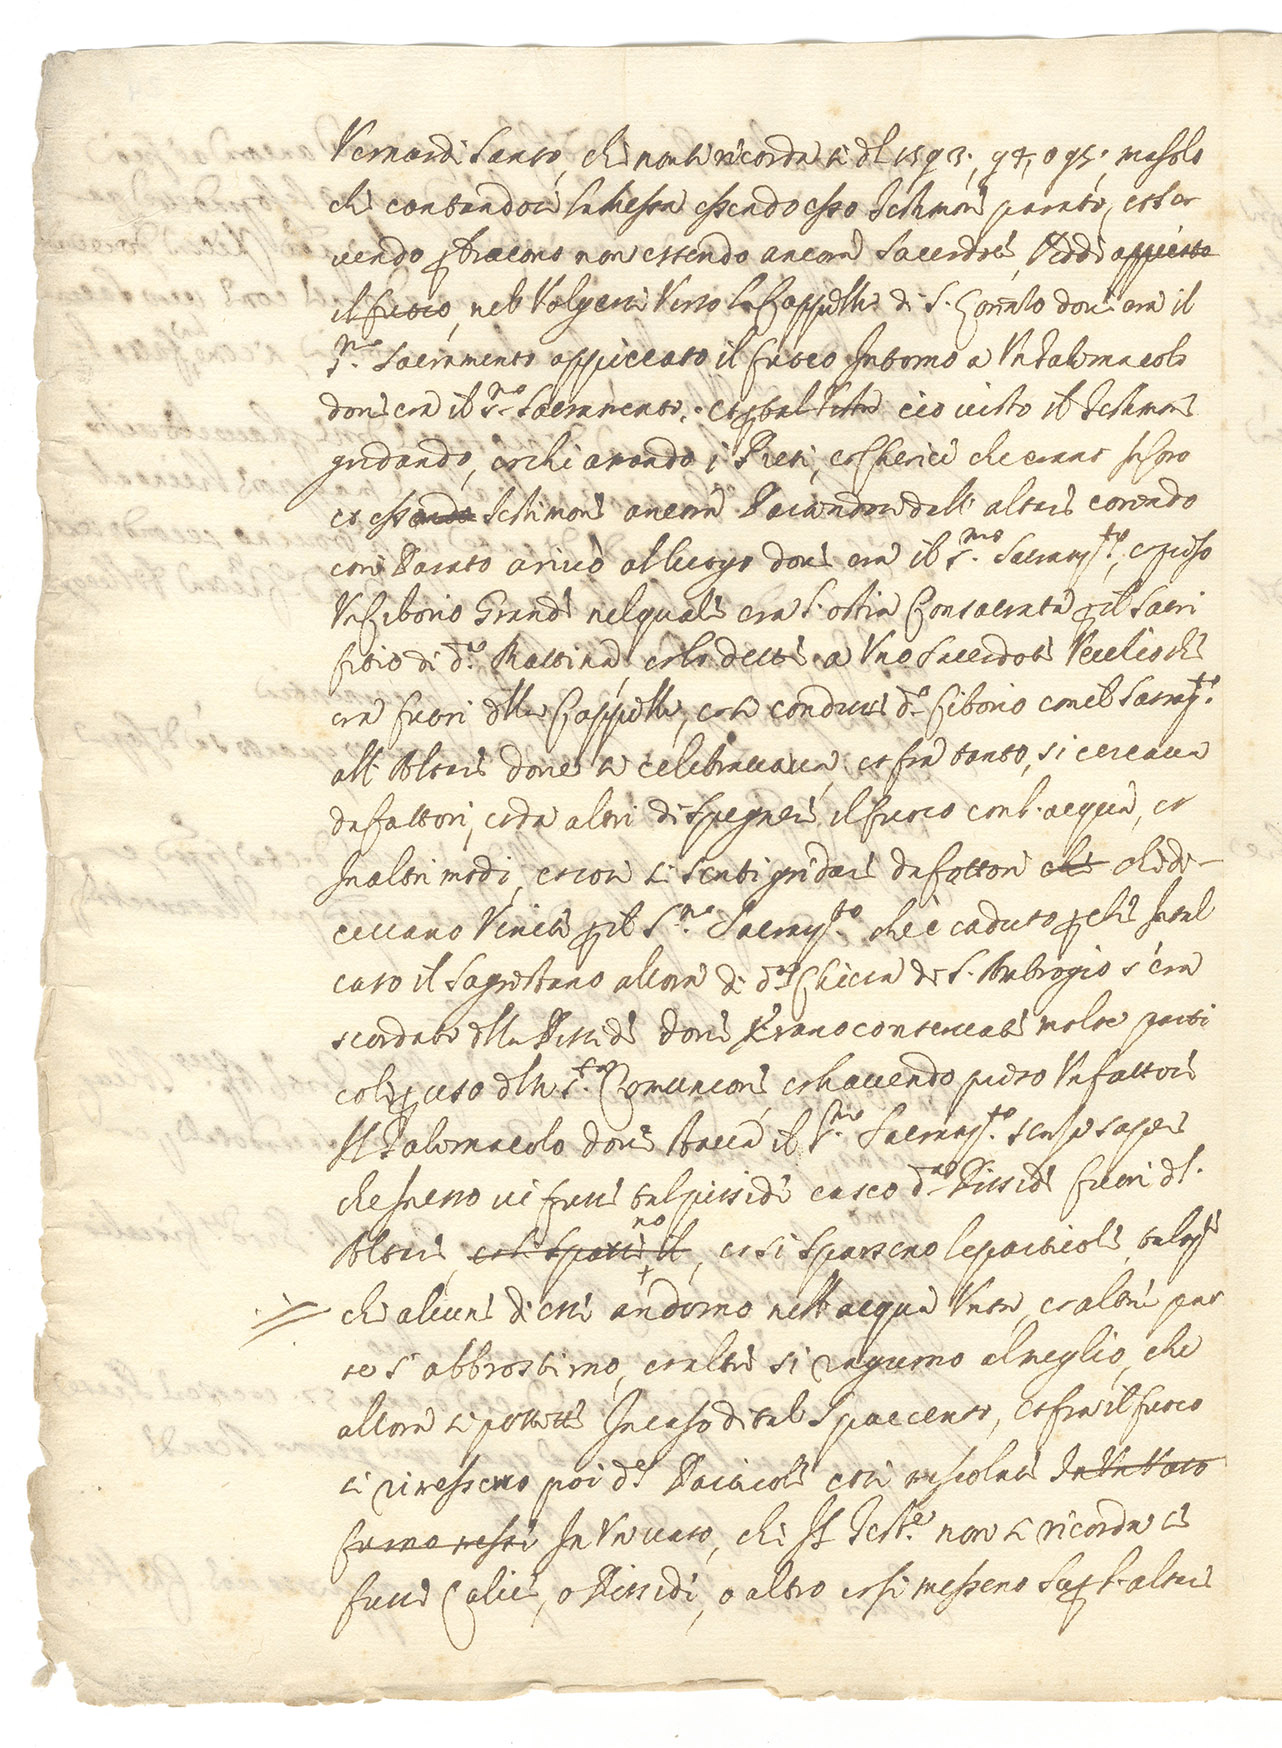 Vernardi Santo, che non si ricorda se del 1593., 94, o 95; ma solo
che cantandosi la Messa essendo esso Testimone parato, et ser
vendo p Diacono non essendo ancora Sacerdote, Vedde appicato
il fuoco, nel Volgersi Verso la Cappella di S. dove era il
S.mo Sacramento appiccato il fuoco Intorno a Un Tabernacolo
dove era il S.mo Sacramento, et p tal ciò visto il Testimone
gridando, et chiamando i Preti, et Cherici che erano In Coro
et essendo Testimone ancora dall' altare correndo
così Parato arrivò al luogo dove era il S.mo Sacram.to, e preso
Un Ciborio Grande nel quale era l'ostia Consacrata p il Sacri
fitio di d.a Mattina, et lo dette a Uno Sacerdote Vecchio che
era fuori della Cappella, et si condusse d.o Ciborio con il Sacram.to
all' Altare dove si celebrava, et fra tanto, si cercava
da fattori, et da altri di spegnere il fuoco con l'acqua, et
In altri modi, et così si sentì gridare da fattori che che di-
cevano Venite p il S.mo Sacram.to che è caduto p che In tal
caso il Sagrestano allora di d.a Chiesa di S. Ambrogio s'era
scordato della Pisside dove Erano conservate molte parti
cole p uso della S.ta Comunione, et havendo preso Un fattore
Il Tabernacolo dove stava il S.mo Sacram.to senza sapere
che Drento vi fusse tal pisside casco d.a Pisside fuori del
Altare, et si sparseno le particole, talm.te
che alcune di esse andorno nell' acqua Vinta, et altre par
te s'abbrostirno, et altre si ragunorno al meglio, che
allora si potette In caso di tal Spavento, et fra il fuoco
si rimesseno poi d.e Particole così mescolate In Un Vaso
furno messe In Un vaso, che Il Test.e non si ricorda se
fusse Calice, o Pisside, o altro et si messeno Sop.a l'altare